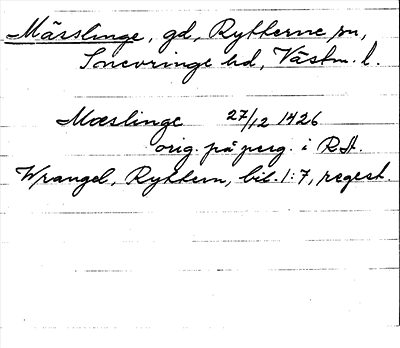 Märslinge, gd, Rytterne sn,
Snevringe hd, Västm. l.
Mœslinge 27/12 1426
orig. på perg. i RA.
Wrangel, Ryttern, bil. 1:7, regest.